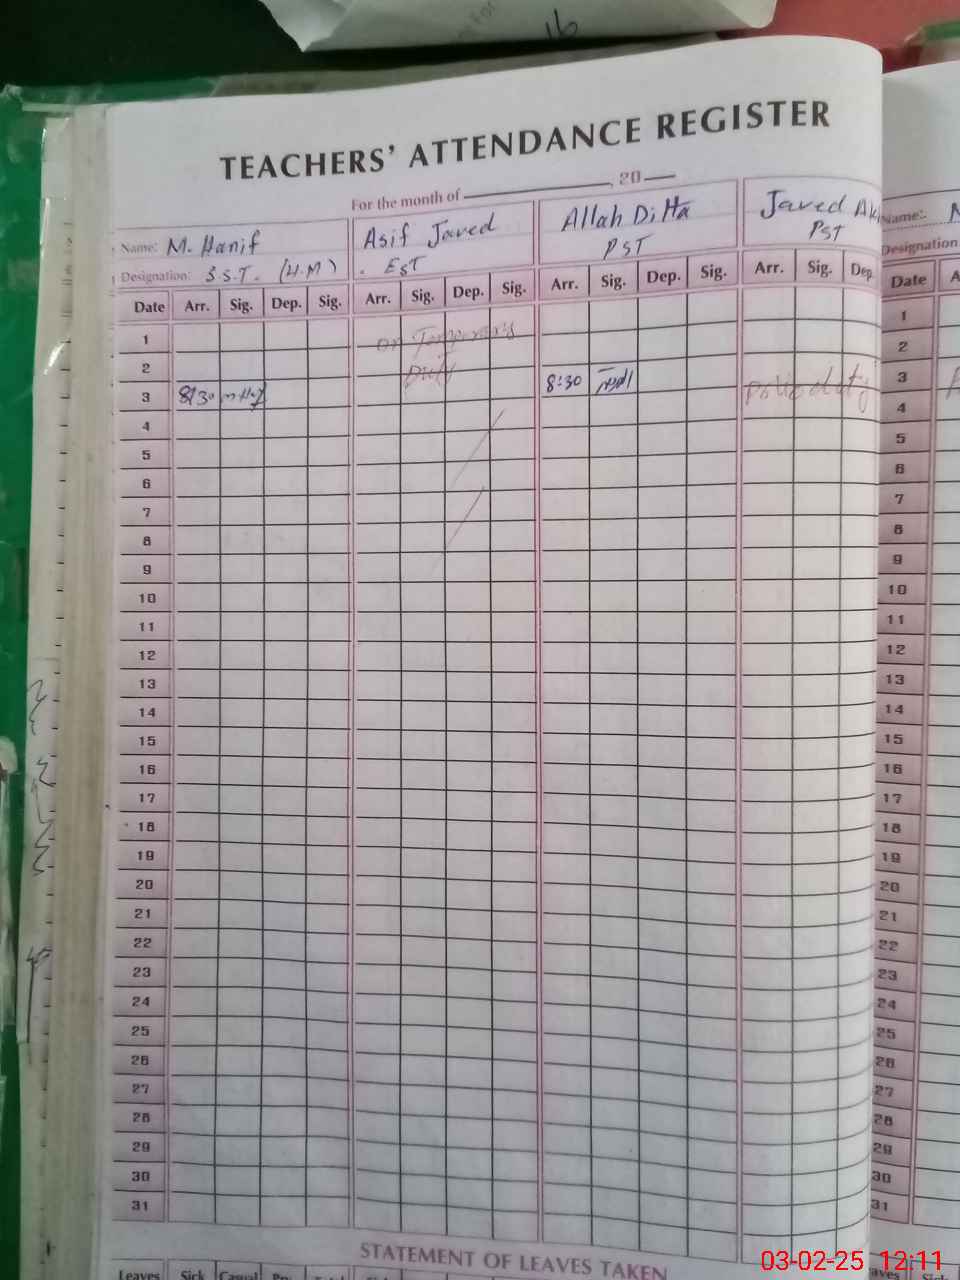 16
TEACHERS' ATTENDANCE REGISTER
For the month of ________, 20 ___
Name: M. Hanif
Designation: S.S.T. (H.M)
Asif Javed
EST
Allah Ditta
PST
Javed
PST
Name:
Designation
Date Arr. Sig. Dep. Sig. Arr. Sig. Dep. Sig. Arr. Sig. Dep. Sig. Arr. Sig. Dep. Date
1 on Temporary 1
2 Duty 2
3 8:30 8:30 polio duty 3
4 4
5 5
6 6
7 7
8 8
9 9
10 10
11 11
12 12
13 13
14 14
15 15
16 16
17 17
18 18
19 19
20 20
21 21
22 22
23 23
24 24
25 25
26 26
27 27
28 28
29 29
30 30
31 31
STATEMENT OF LEAVES TAKEN
Leaves Sick Casual
03-02-25 12:11